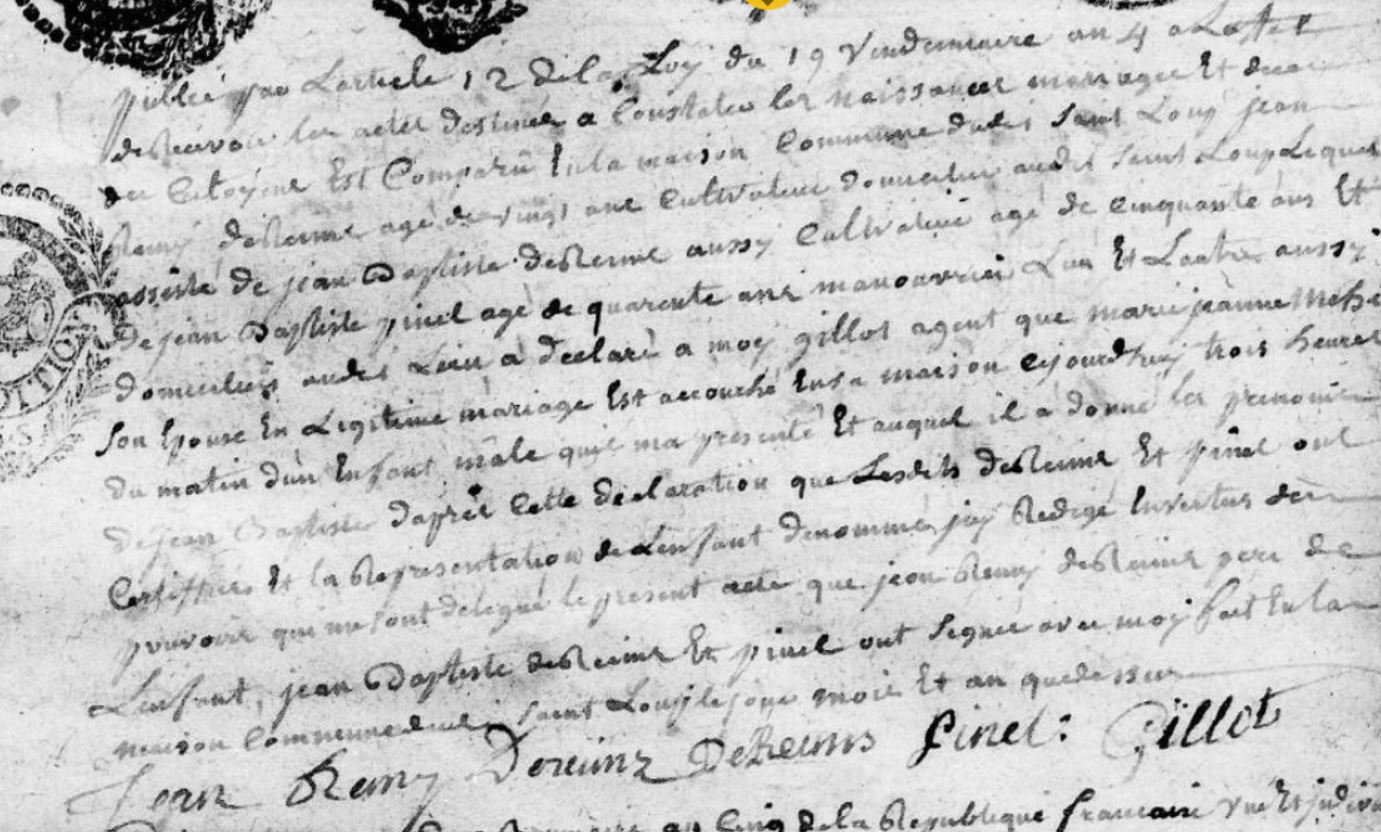 publié par Larticle 12 de la Loy du 19 Vindemiaire an 4 a Lefet
de Recevoir les actes destinés a Constater les naissances marriages Et deces
des Citoyens Est Comparu En la maison Commune dudit Saint Loup jean
Remy deReims agé de vingt ans Cultivateur domicilier audit Saint Loup Lequel
assisté de jean Baptiste deReims aussy Cultivateur agé de cinquante ans Et
de jean Baptiste pinel agé de quarente ans manouvrier Lun Et Lautre aussy
domiciliers audit Lieu à declaré a moy gillot agent que marie jeanne
Son Epouse En Legitime màriage Est accouché En sa maison cejourdhuy trois heures
du matin dùn Enfant mâle quil ma presenté Et auquel il a donné les prenoms
de jean Baptiste daprès Cette declaration que Lesdits deReims Et pinel ont
Certiffiers Et la Representation de Lenfant denommé jay Redigé Envertus des
pouvoirs qui me sont delegué le present acte que jean Remy deReims pere de
Lenfant, jean Baptiste deReims Et pinel ont Signée avec moy fait En la
maison Commune dudit Saint Loup le jour mois Et an que dessus
Jean Remy Dereims DeReims Pinel: Gillot
an Cinq de la Republique francaise une Et
DITION